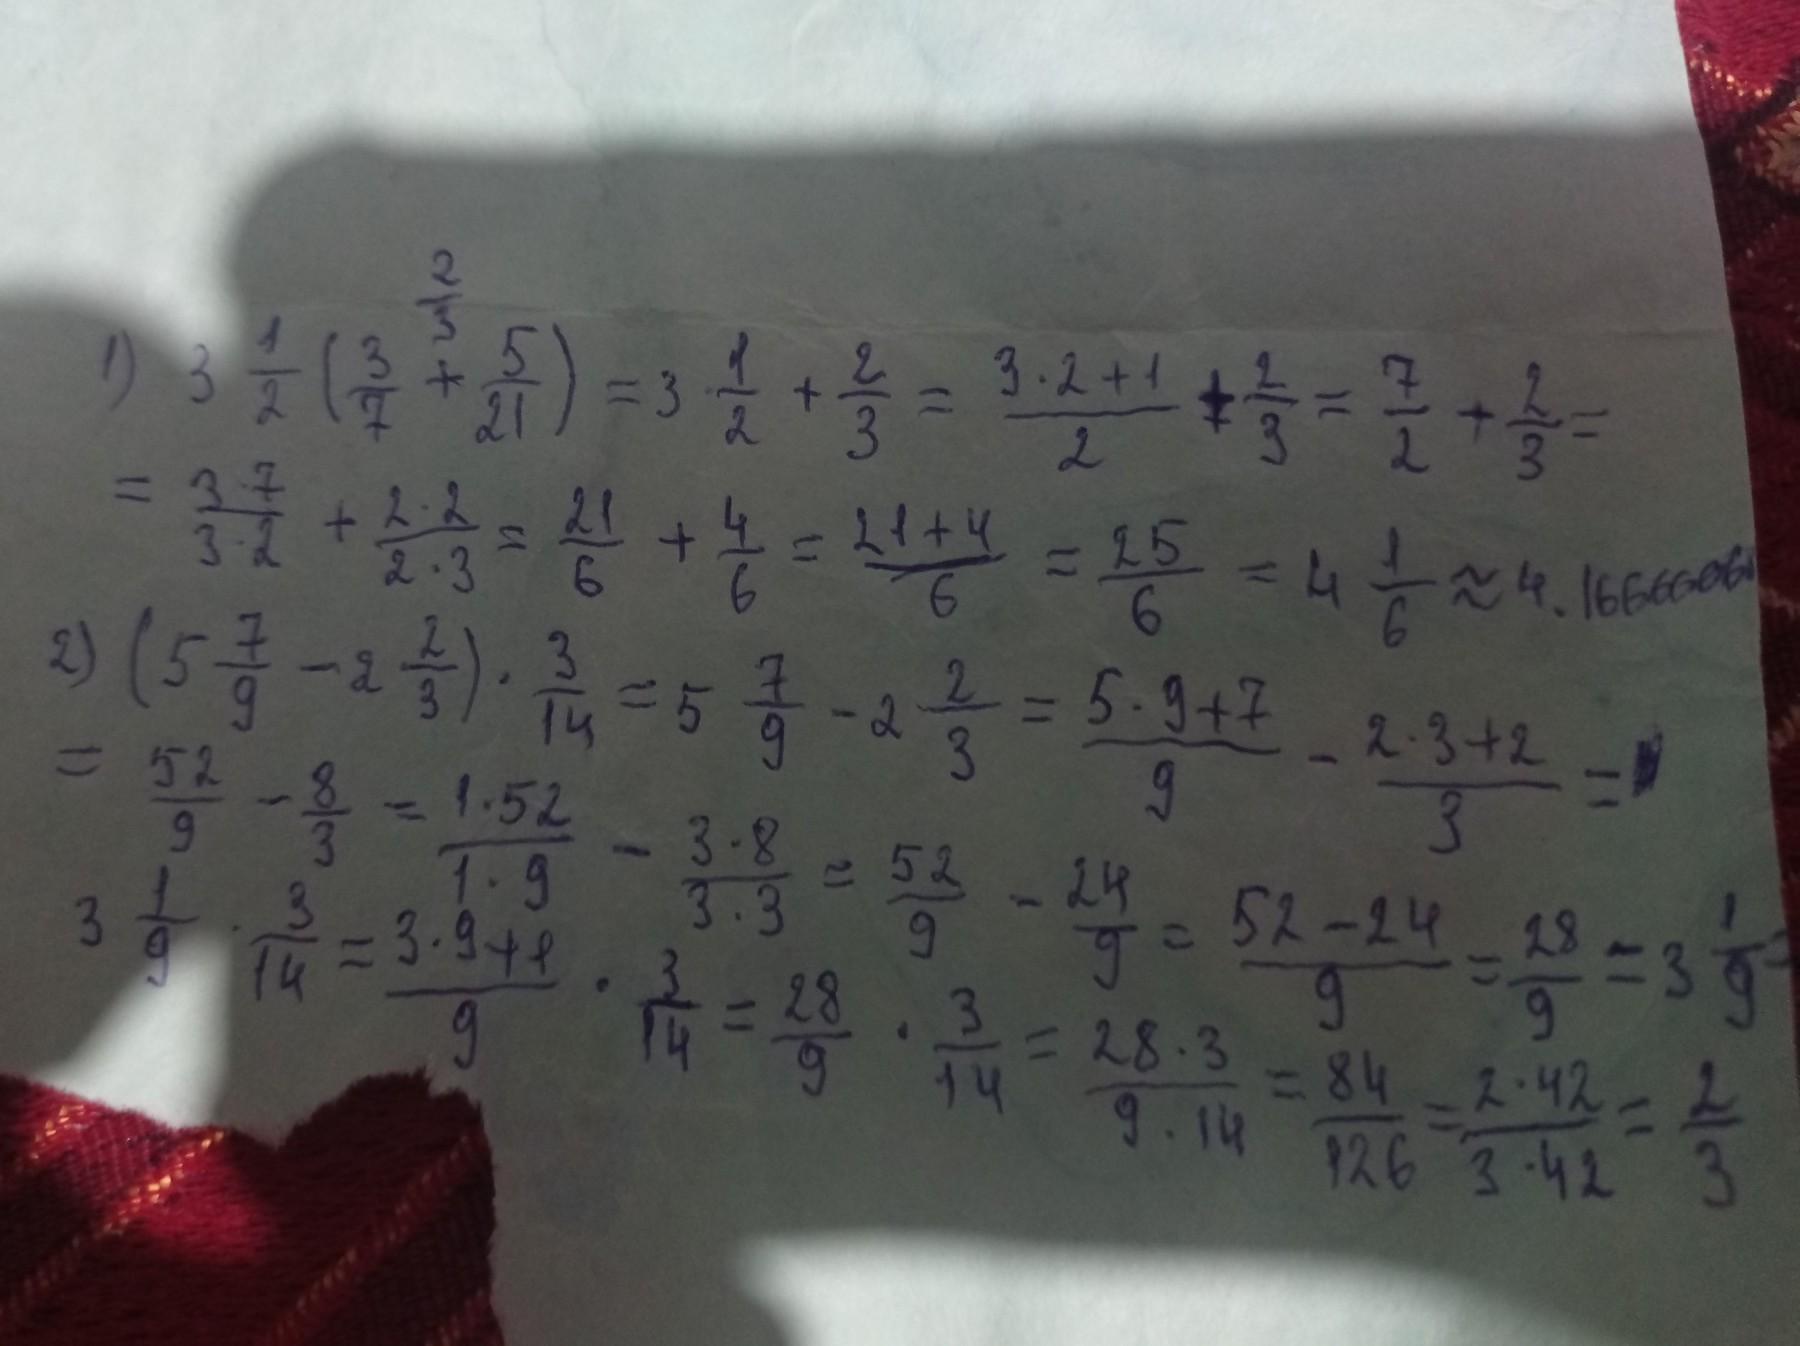 2/3
1) 3 1/2 (3/7 + 5/21) = 3 · 1/2 + 2/3 = (3·2+1)/2 + 2/3 = 7/2 + 2/3 =
= (3·7)/(3·2) + (2·2)/(2·3) = 21/6 + 4/6 = (21+4)/6 = 25/6 = 4 1/6 ≈ 4.
2) (5 7/9 - 2 2/3) · 3/14 = 5 7/9 - 2 2/3 = (5·9+7)/9 - (2·3+2)/3 =
= 52/9 - 8/3 = (1·52)/(1·9) - (3·8)/(3·3) = 52/9 - 24/9 = (52-24)/9 = 28/9 = 3 1/9 =
3 1/9 · 3/14 = (3·9+1)/9 · 3/14 = 28/9 · 3/14 = (28·3)/(9·14) = 84/126 = (2·42)/(3·42) = 2/3